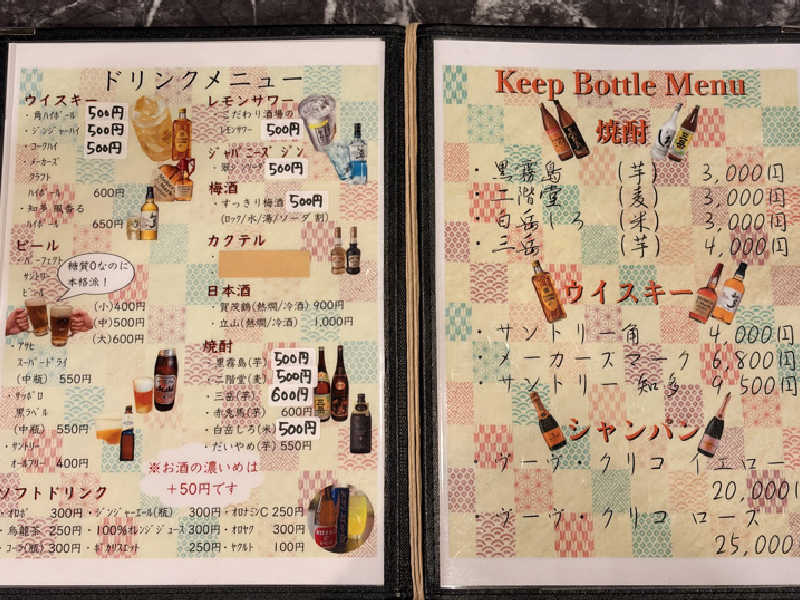 ドリンクメニュー
ウイスキー
・角ハイボール 500円
・ジンジャーハイ 500円
・コークハイ 500円
・メーカーズ
クラフト
ハイボール 600円
・知多 風香る
ハイボール 650円
ビール
・パーフェクト
サントリー
ビール
糖質0なのに
本格派！
(小)400円
(中)500円
(大)600円
・アサヒ
スーパードライ
(中瓶) 550円
・サッポロ
黒ラベル
(中瓶) 550円
・サントリー
オールフリー 400円
レモンサワー
・こだわり酒場の
レモンサワー 500円
ジャパニーズジン
・翠ジンソーダ 500円
梅酒
・すっきり梅酒 500円
(ロック/水/湯/ソーダ 割)
カクテル
日本酒
・賀茂鶴(熱燗/冷酒) 900円
・立山(熱燗/冷酒) 1,000円
焼酎
・黒霧島(芋) 500円
・二階堂(麦) 500円
・三岳(芋) 600円
・赤兎馬(芋) 600円
・白岳しろ(米) 500円
・だいやめ(芋) 550円
※お酒の濃いめは
＋50円です
ソフトドリンク
・オロポ 300円・ジンジャーエール(瓶) 300円・オロナミンC 250円
・烏龍茶 250円・100%オレンジジュース 300円・オロヤク 300円
・コーラ(瓶) 300円・ポカリスエット 250円・ヤクルト 100円
Keep Bottle Menu
焼酎
・黒霧島 (芋) 3,000円
・二階堂 (麦) 3,000円
・白岳しろ (米) 3,000円
・三岳 (芋) 4,000円
ウイスキー
・サントリー角 4,000円
・メーカーズマーク 6,800円
・サントリー 知多 9,500円
シャンパン
・ヴーヴ・クリコ イエロー
20,000
・ヴーヴ・クリコ ローズ
25,000